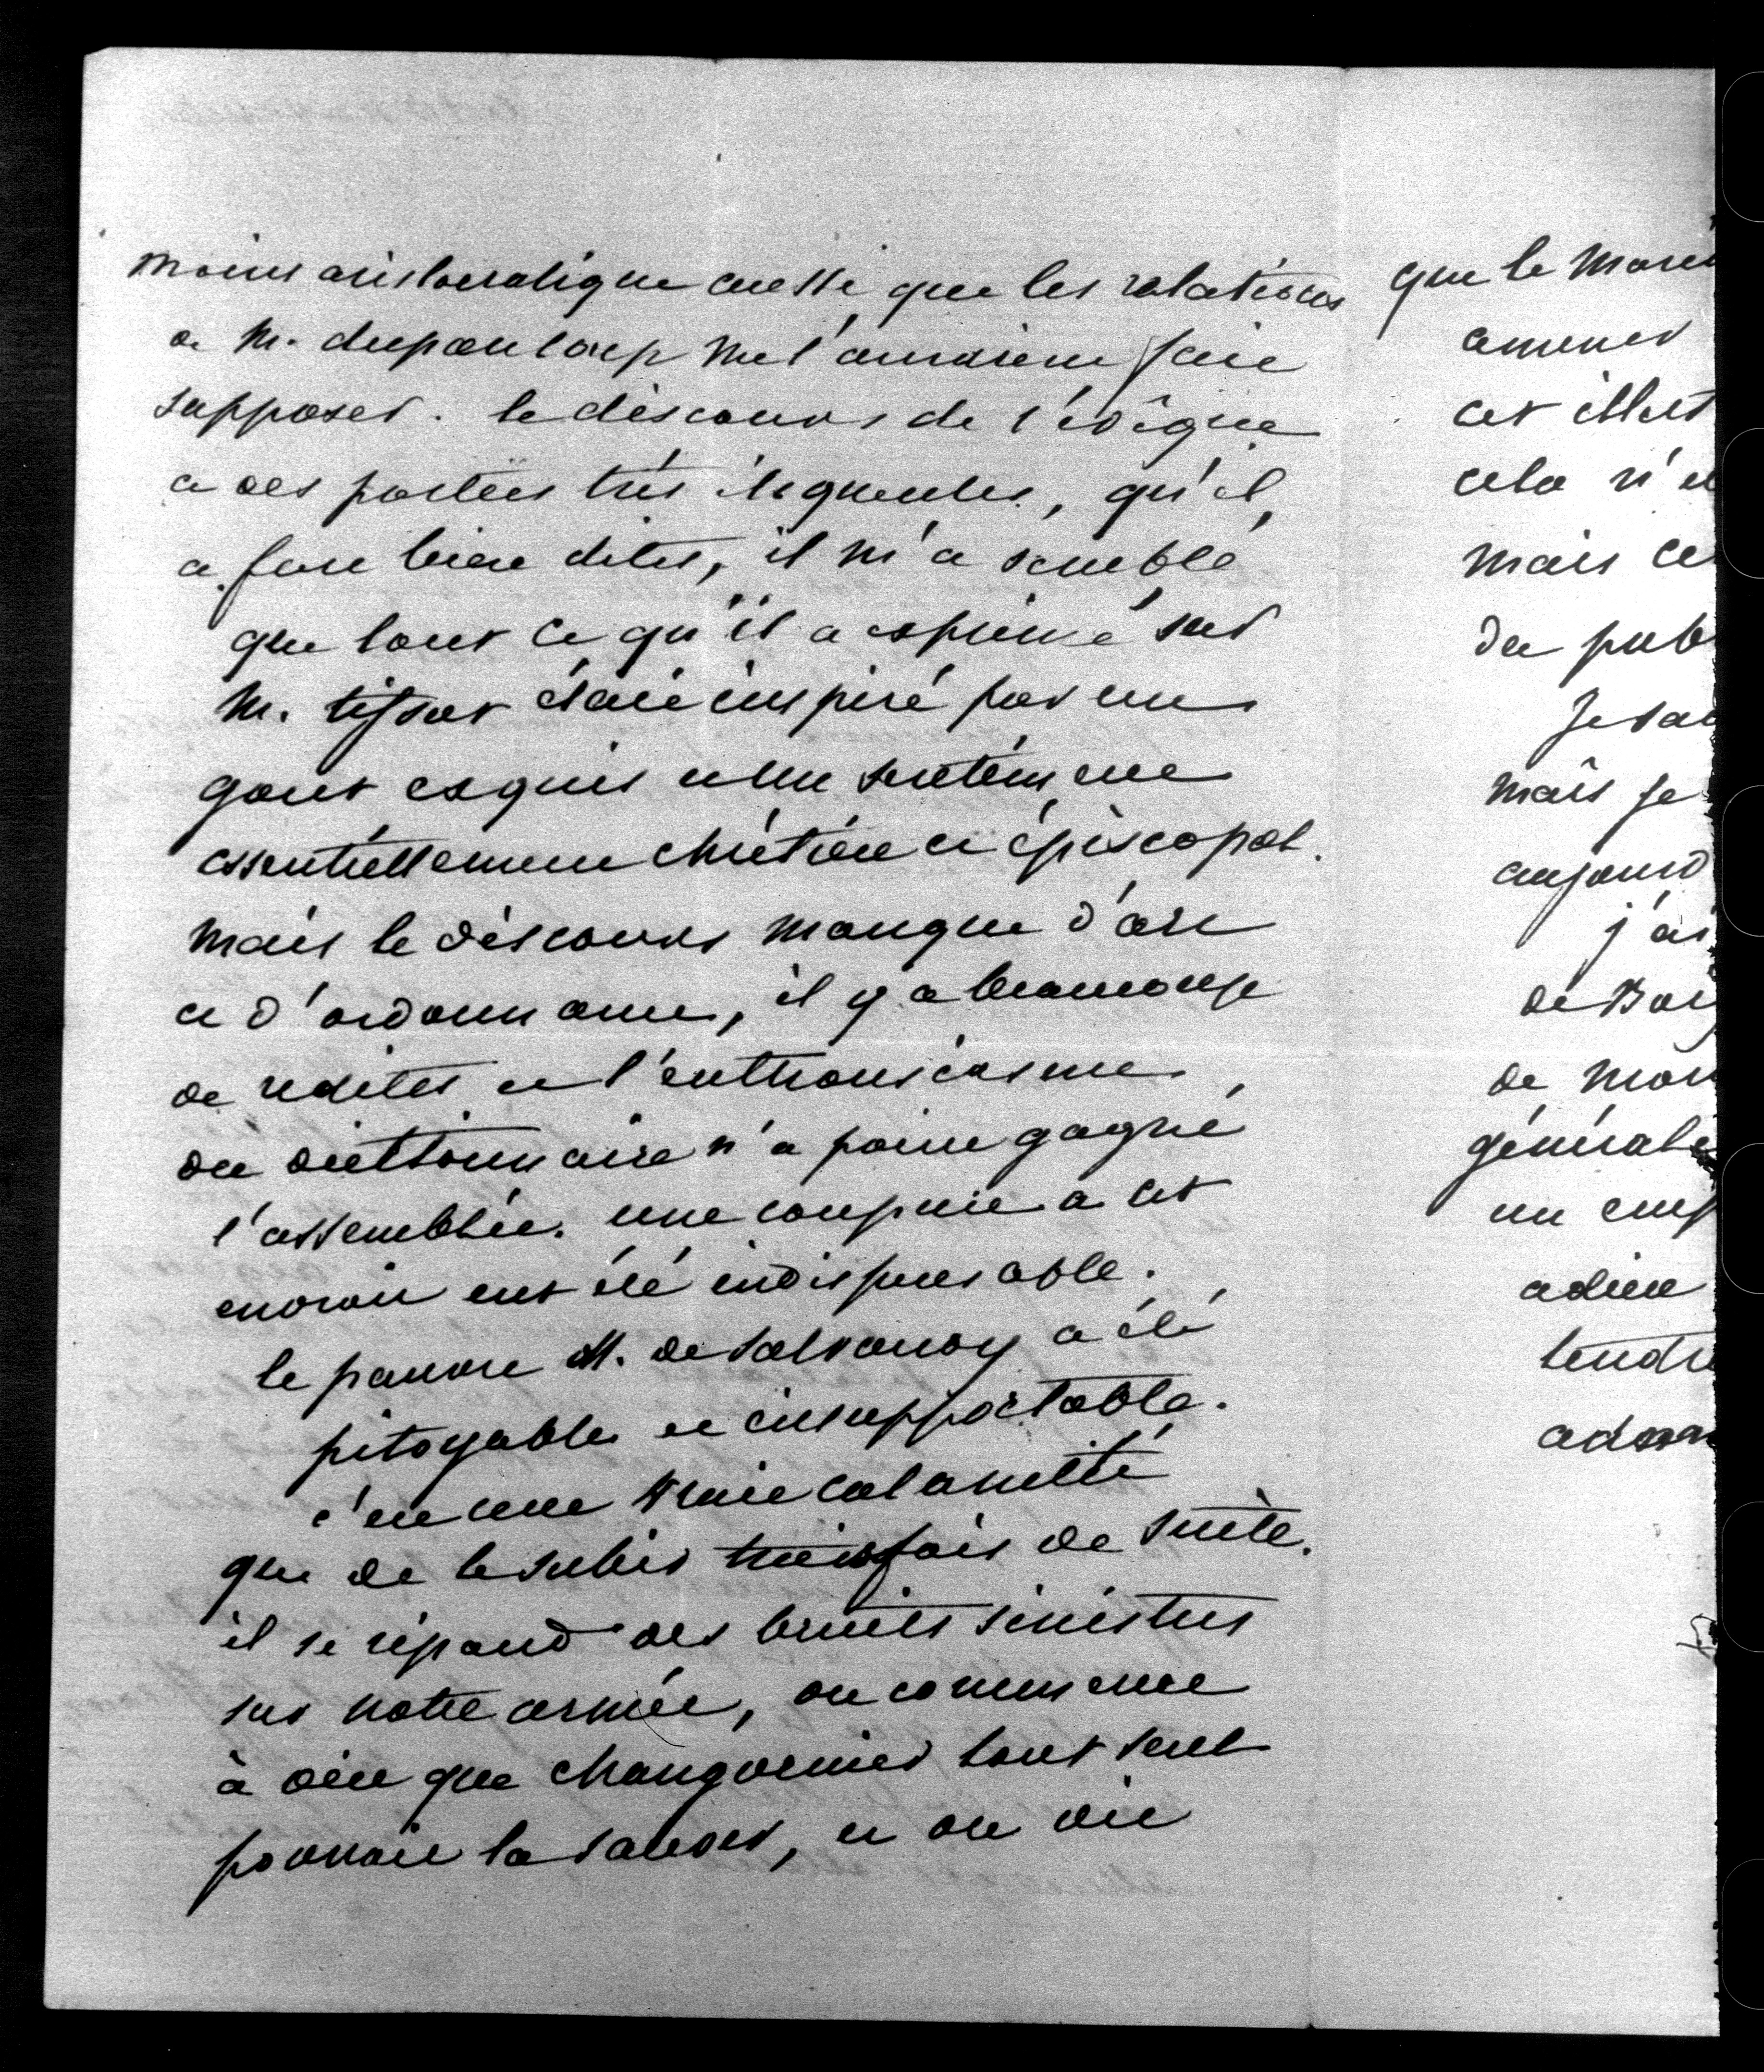 moins aristocratique aussi que les relations
de M. dupanloup me l'auraient fait
supposer. le discours de l'évêque
a des parties très éloquentes, qu'il
a fort bien dites, il m'a semblé
que tout ce qu'il a exprimé sur
M. tissot était inspiré par un
gout exquis et un sentiment
essentiellement chrétien et épiscopal.
mais le discours manque d'art
et d'ordonnance, il y a beaucoup
de redites et l'enthousiasme
du dictionnaire n'a point gagné
l'assemblée. une coupure a cet
endroit eut été indispensable.
le pauvre M. de Salvandy a été
pitoyable et insupportable.
c'est une vraie calamité
que de le subir trois fois de suite.
il se répand des bruits sinistres
sur notre armée, on commence
à dire que changarnier tout seul
pourrait la sauver, et on dit
que le
amener
cet
cela n'
mais
du
mais je
j'ai
de
de
un
adieu